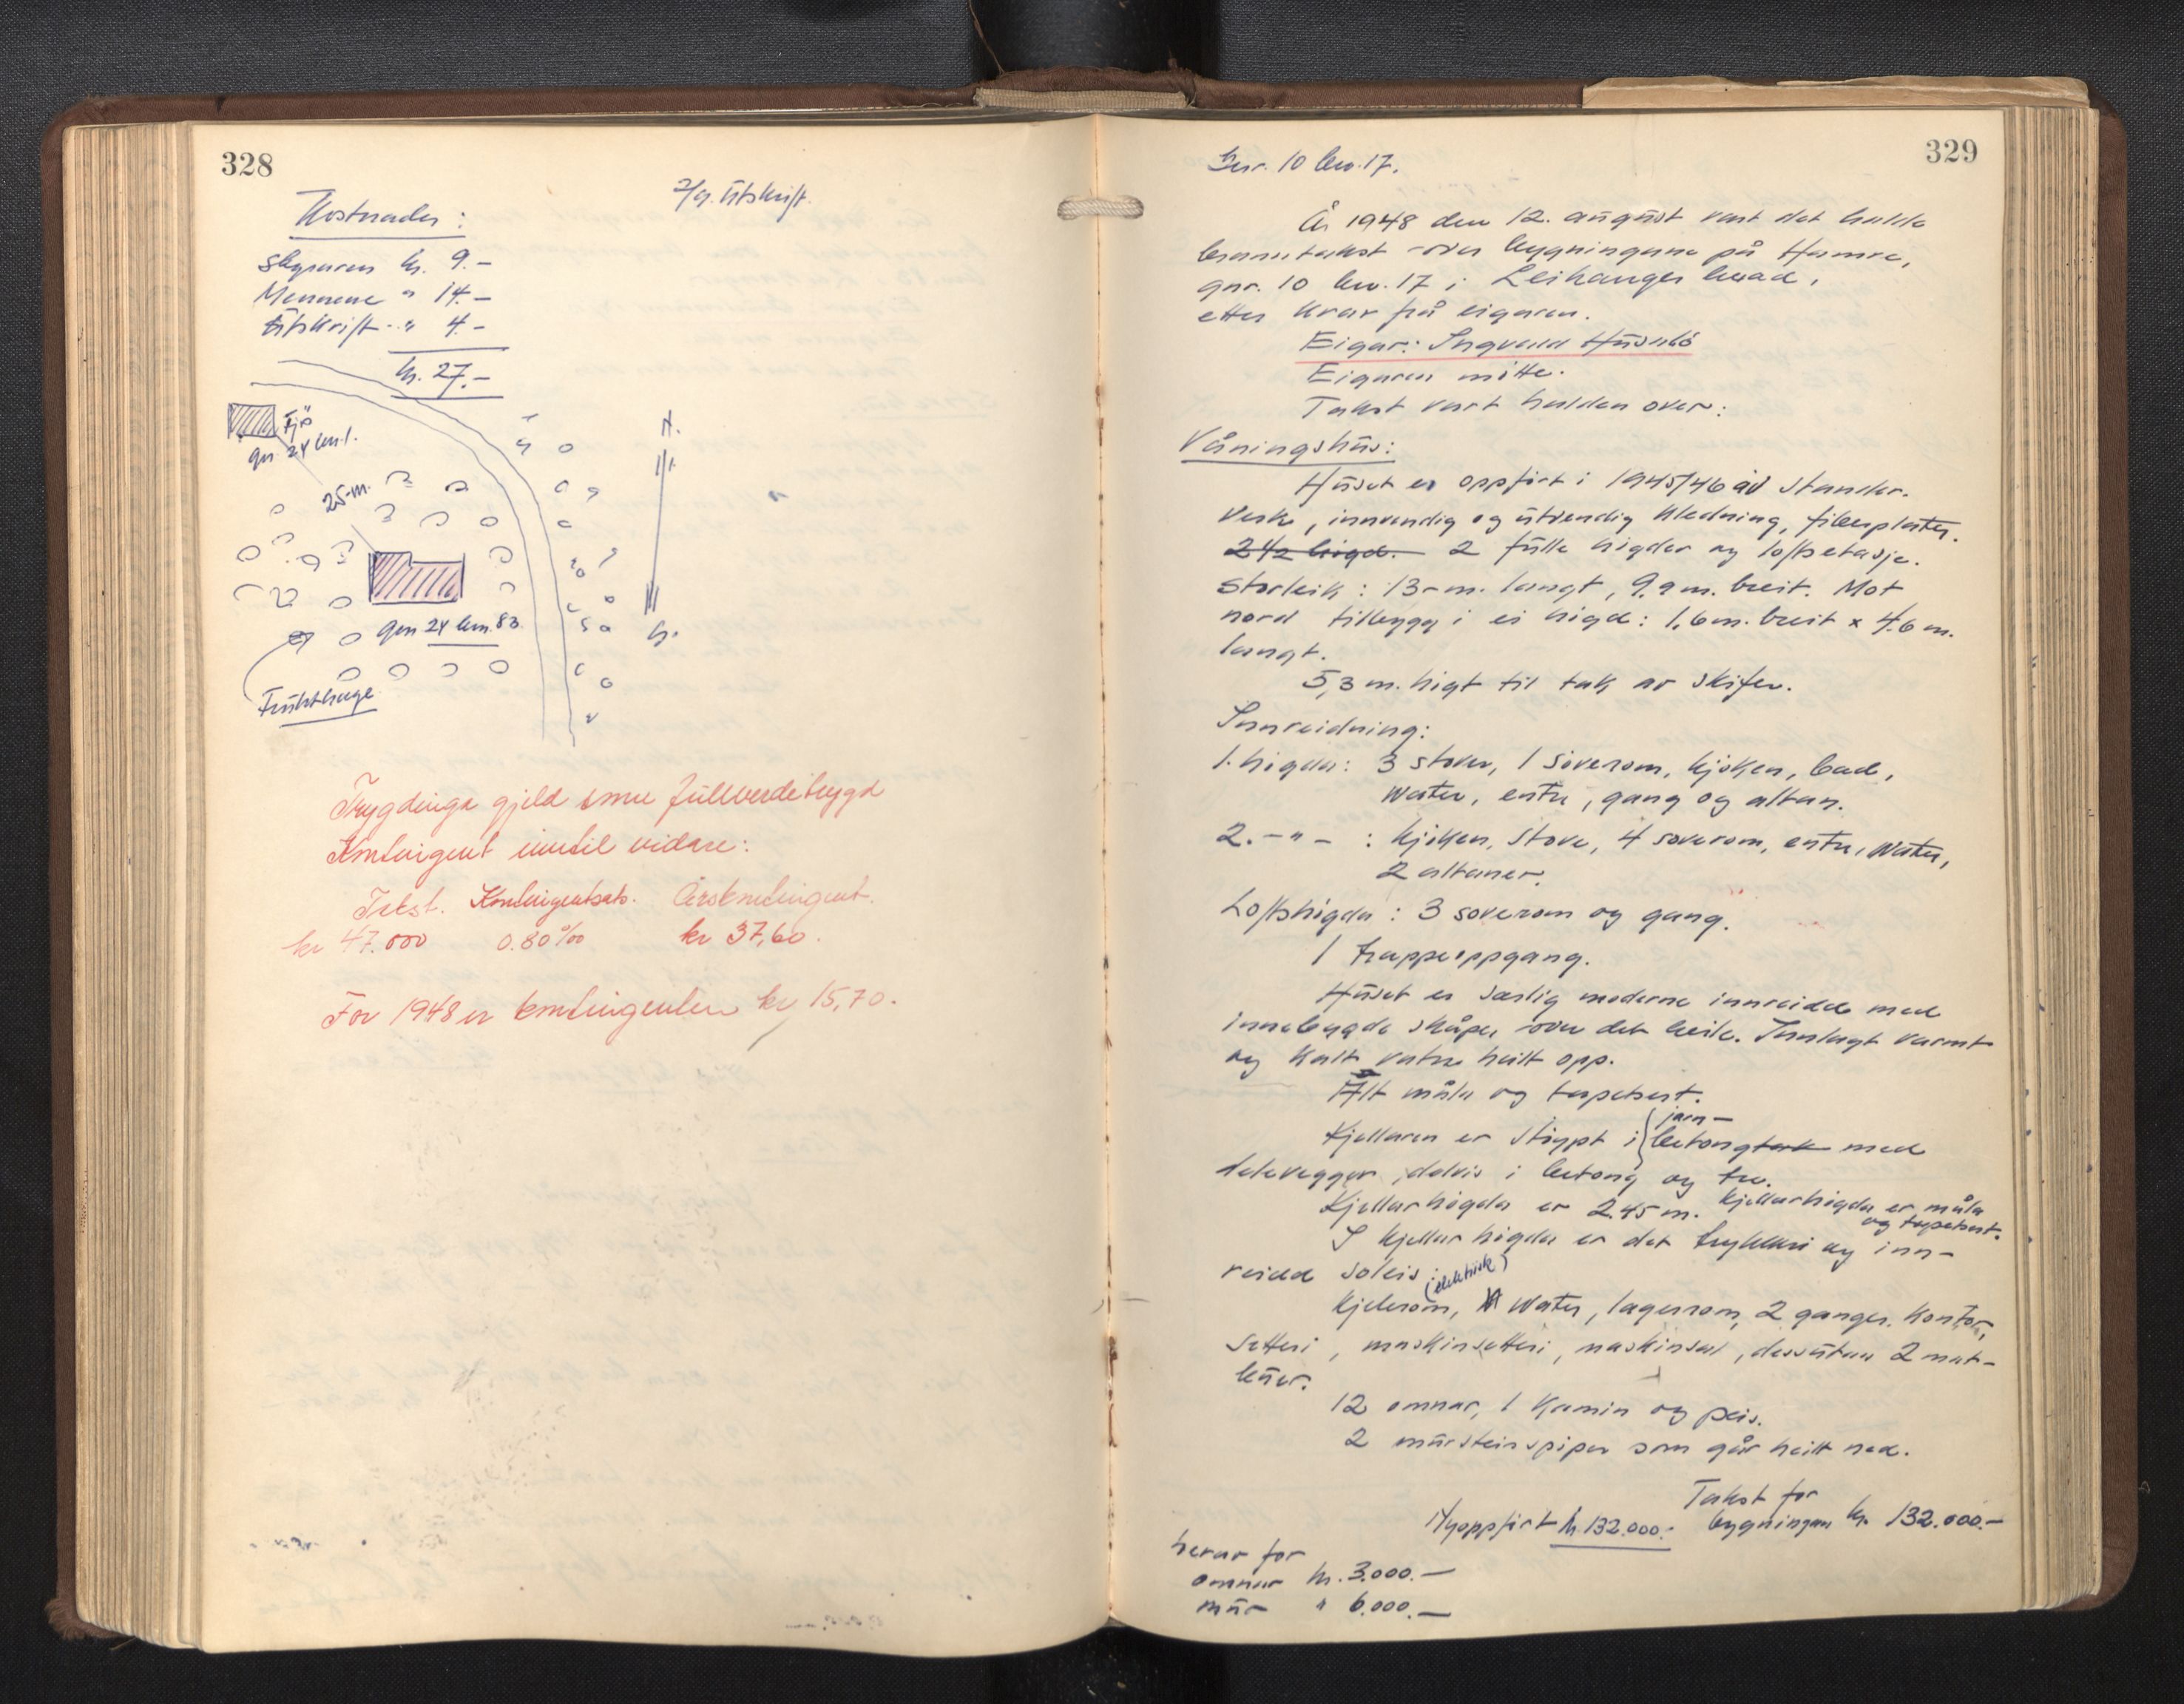 328
2/9. Utskrift.
Kostnader:
Skyssaren kr. 9.-
Mennene " 14.-
Utskrift " 4.-
kr. 27.-
Fjös
gnr 24 bnr. 1.
25-m.
N.
S.
gnr 24 bnr. 83
Frukthage
Trygdinga gjeld som fullverditrygd
Kontingent inntil vidare:
Takst. Kontingentsats. Årskontingent.
kr 47.000 0.80 ‰ kr 37,60.
For 1948 er kontingenten kr 15,70.
329
Gnr. 10 bnr. 17.
År 1948 den 12. august vart det halde
branntakst over bygningane på Hamre,
gnr. 10 bnr. 17 i Leikanger herad,
etter krav frå eigaren.
Eigar: Ingvald Husabö
Eigaren møtte.
Takst vart halden over:
Våningshus:
Huset er oppført i 1945/46 av stander-
verk, innvendig og utvendig kledning, fiberplater.
2 1/2 høgd. 2 fulle høgder og loftsetasje.
Storleik: 13-m. langt, 9.9 m. breit. Mot
nord tilbygg i ei høgd: 1,6 m. breit x 4.6 m.
langt.
5,3 m. høgt til tak av skifer.
Innreidning:
1. høgda: 3 stover, 1 soverom, kjøken, bad,
water, entre, gang og altan.
2. -"- : kjøken, stove, 4 soverom, entre, water,
2 altaner.
Loftshøgda: 3 soverom og gang.
1 trappeoppgang.
Huset er særlig moderne innreidd med
innebygde skåper over det heile. Innlagt varmt
og kalt vatn heilt opp.
Alt måla og tapetsert.
Kjellaren er støypt i jarn-
betongtak med
delevegger delvis i betong og tre.
Kjellarhøgda er 2.45 m. Kjellarhøgda er måla
og tapetsert.
I kjellarhøgda er det trykkeri og inn-
reidd soleis:
(elektrisk)
Kjelerom, water, lagerrom, 2 ganger. Kontor,
setteri, maskinsetteri, maskinsal, dessutan 2 mat-
buer.
12 omnar, 1 kamin og peis.
2 mursteinspiper som går heilt ned.
Takst for
Nyoppført kr. 132.000.- bygningen kr. 132.000.-
herav for
omnar kr. 3.000.-
mur " 6.000.-